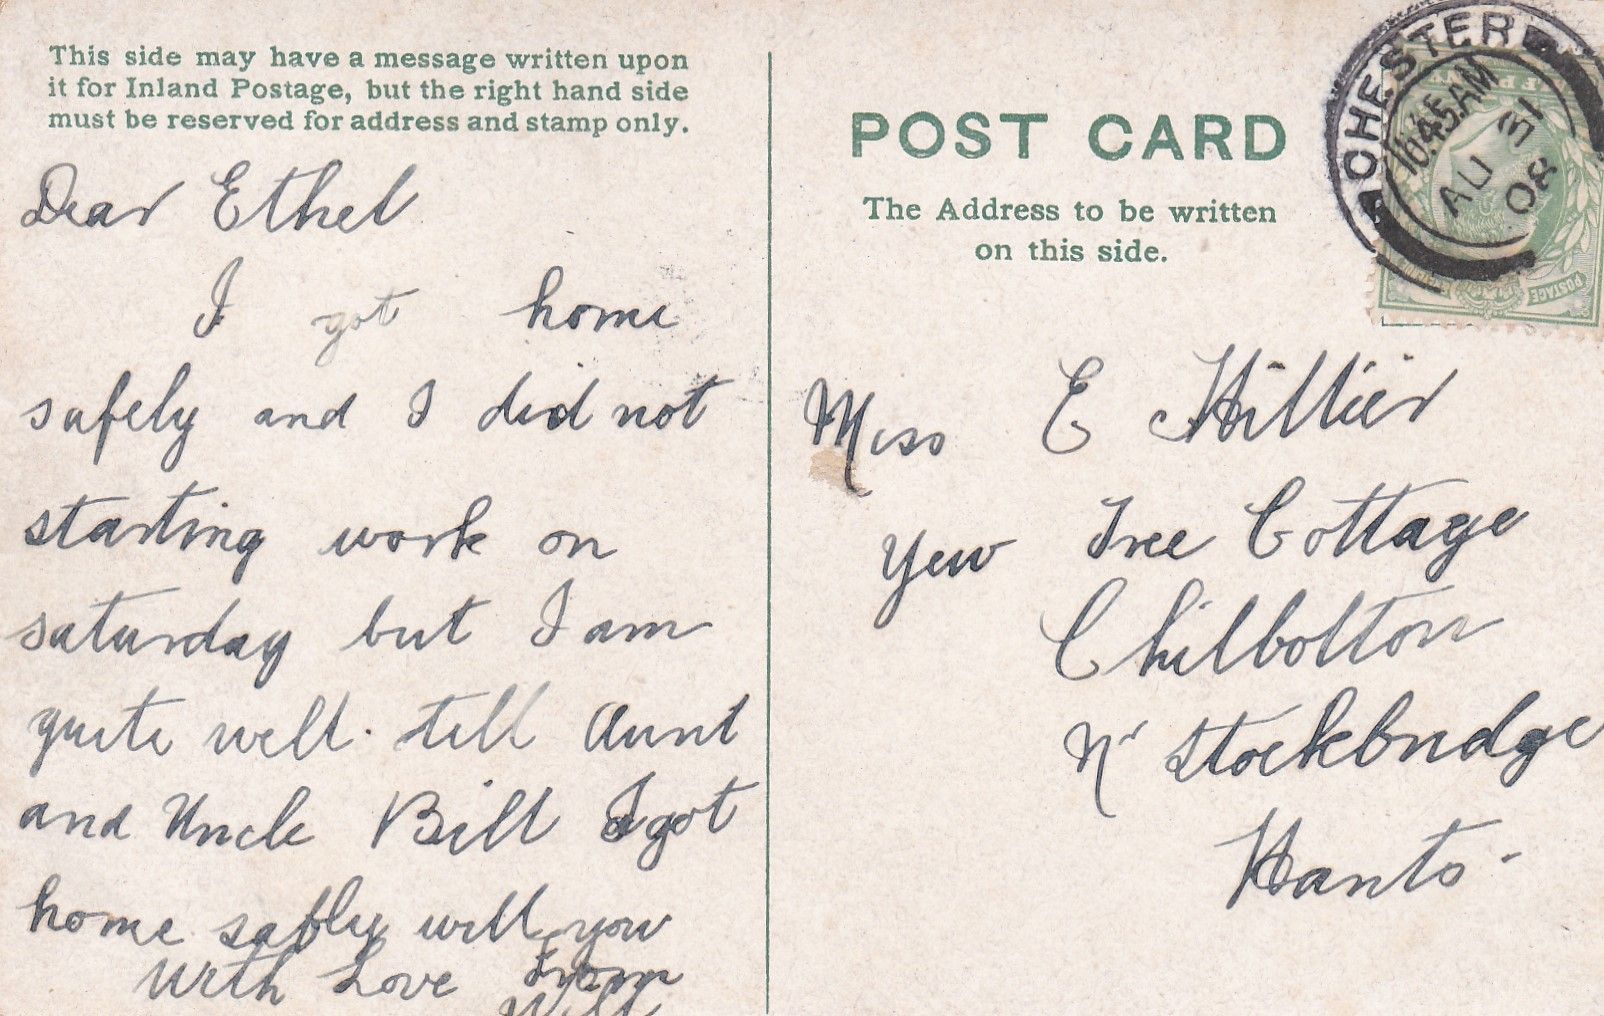 This side may have a message written upon
it for Inland Postage, but the right hand side
must be reserved for address and stamp only.
Dear Ethel
I got home
safely and I did not
starting work on
saturday but I am
quite well. till Aunt
and Uncle Bill I got
home safly will you
With Love From
Will
POST CARD
The Address to be written
on this side.
CHESTER
10.45 AM
AU 31
08
POSTAGE
Miss E Hillier
Yew Tree Cottage
Chilbolton
Nr Stockbridge
Hants-